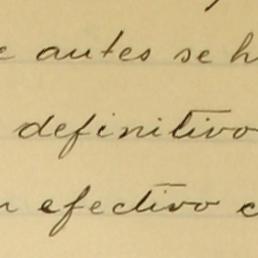 e antes se h
definitivo
n efectivo c